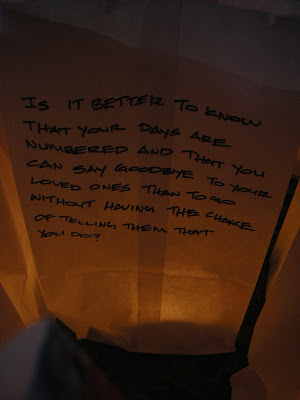 IS IT BETTER TO KNOW
THAT YOUR DAYS ARE
NUMBERED AND THAT YOU
CAN SAY GOODBYE TO YOUR
LOVED ONES THAN TO GO
WITHOUT HAVING THE CHANCE
OF TELLING THEM THAT
YOU DO?